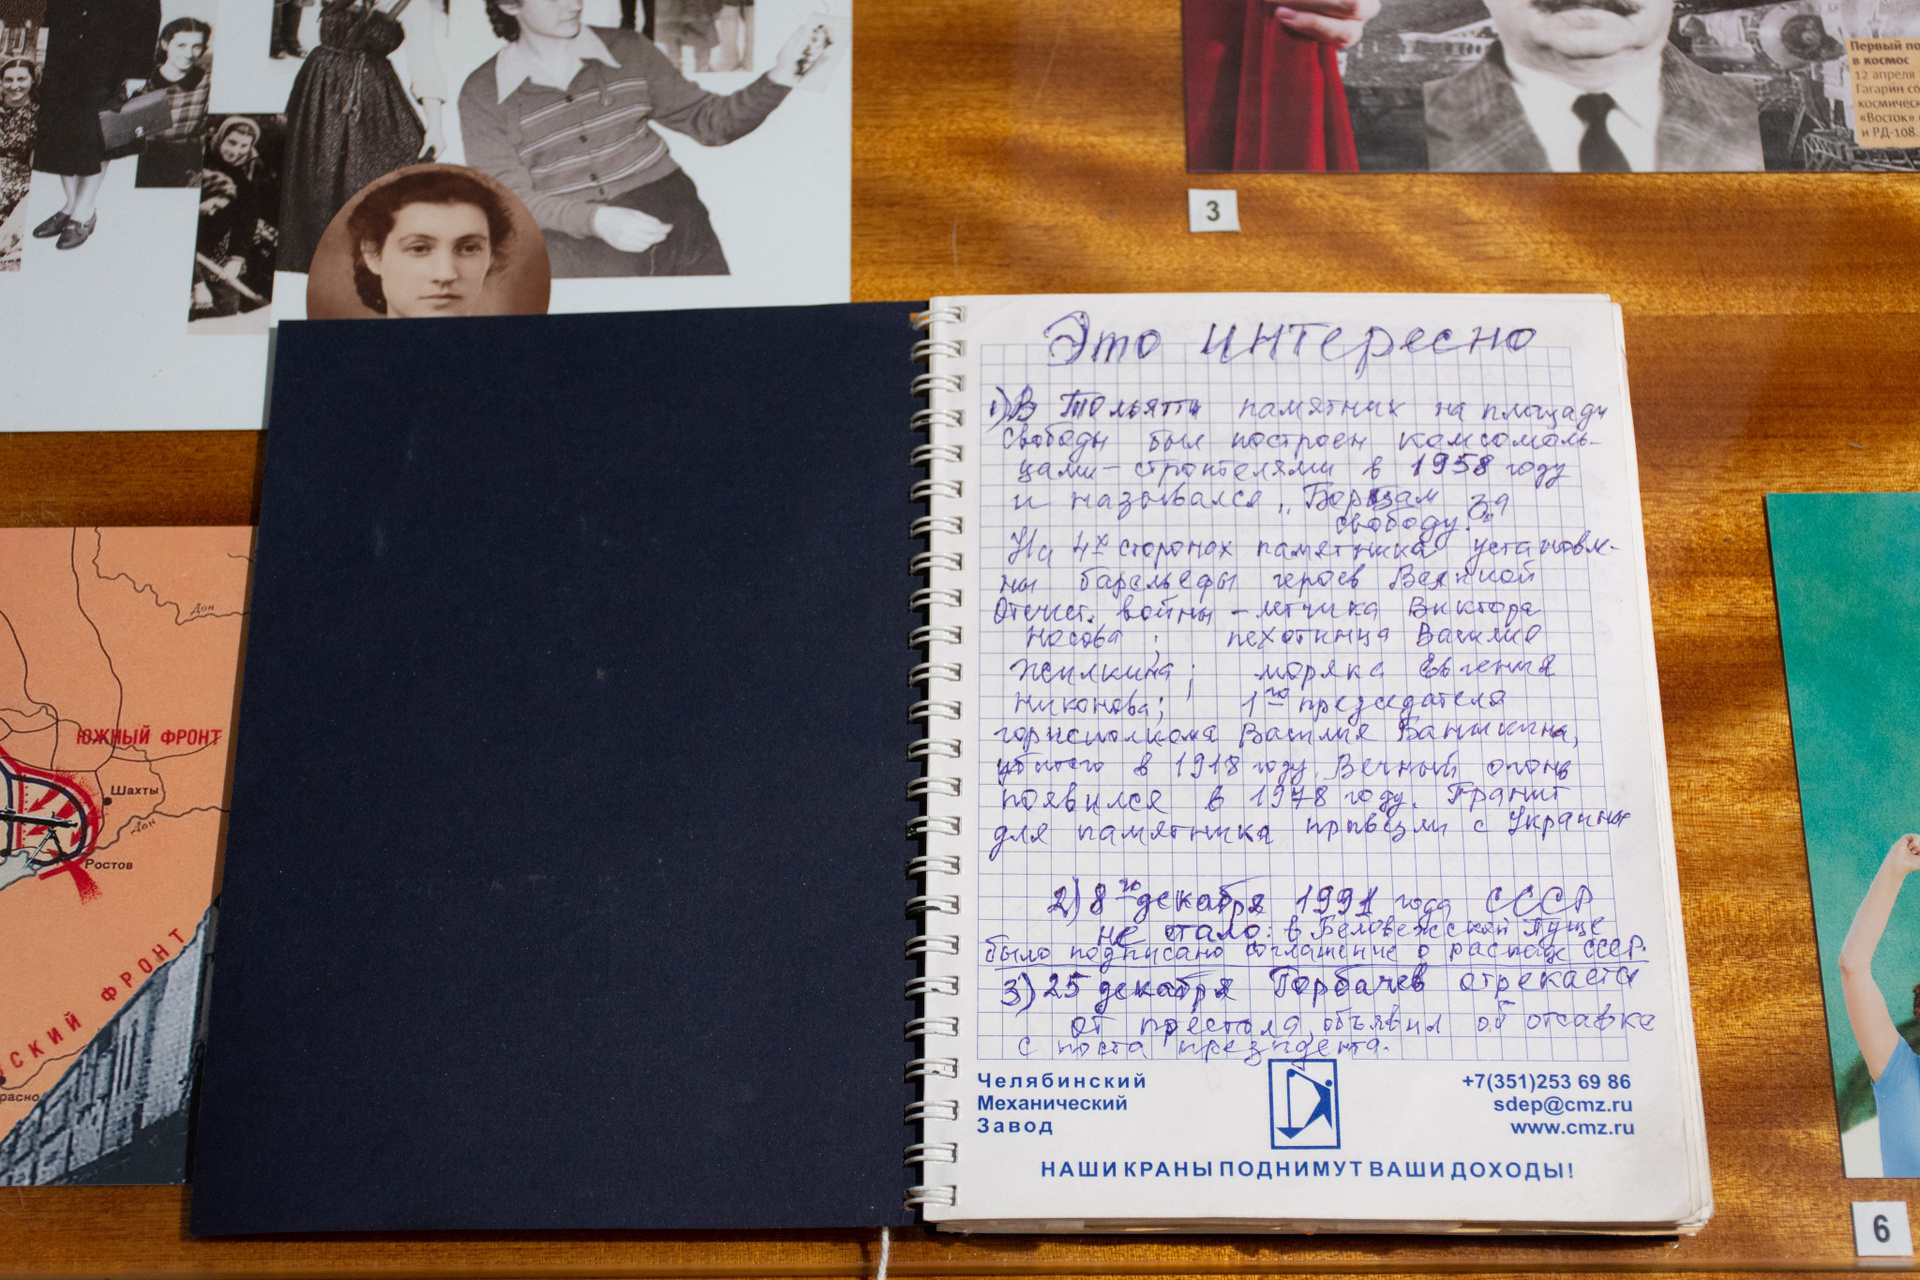 Первый по
в космос
12 апреля
Гагарин со
космическ
«Восток»
и РД-108.
3
Это интересно
1) В Тольятти памятник на площади
свободы был построен комсомоль-
цами-строителями в 1958 году
и назывался „Борцам за
свободу."
На 4х сторонах памятника установле-
ны барельефы героев Великой
Отечест. войны - летчика Виктора
Носова; пехотинца Василия
Жилкина; моряка Евгения
Никонова; 1го председателя
горисполкома Василия Баныкина,
убитого в 1918 году. Вечный огонь
появился в 1978 году. Гранит
для памятника привезли с Украины
2) 8го декабря 1991 года СССР
не стало: в Беловежской Пуще
было подписано соглашение о распаде СССР.
3) 25 декабря Горбачев отрекается
от престола, объявил об отставке
с поста президента.
Челябинский
Механический
Завод
+7(351)253 69 86
sdep@cmz.ru
www.cmz.ru
НАШИ КРАНЫ ПОДНИМУТ ВАШИ ДОХОДЫ!
Дон
ЮЖНЫЙ ФРОНТ
Шахты
Дон
Ростов
СКИЙ ФРОНТ
расно
6